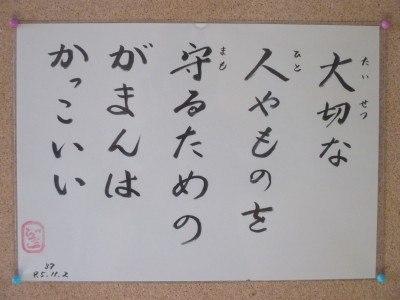 大切な
たいせつ
人やものを
ひと
守るための
まも
がまんは
かっこいい
37
R5.11.2